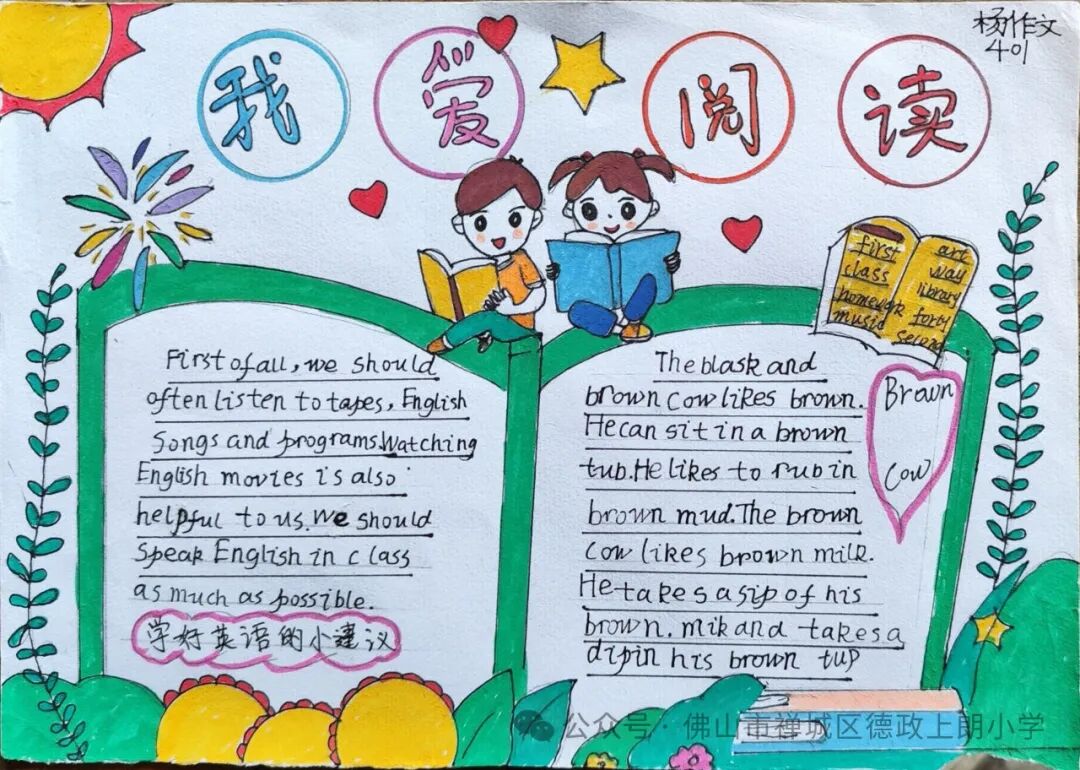 杨作文
401
我爱阅读
first
class
homework
music
art
way
library
forty
second
First of all, we should
often listen to tapes, English
Songs and programs. Watching
English movies is also
helpful to us. We should
Speak English in class
as much as possible.
学好英语的小建议
The blask and
brown cow likes brown.
He can sit in a brown
tub. He likes to rub in
brown mud. The brown
cow likes brown milk.
He takes a sip of his
brown. mik and takes a
dip in his brown tup
Brawn
Cow
公众号·佛山市禅城区德政上朗小学